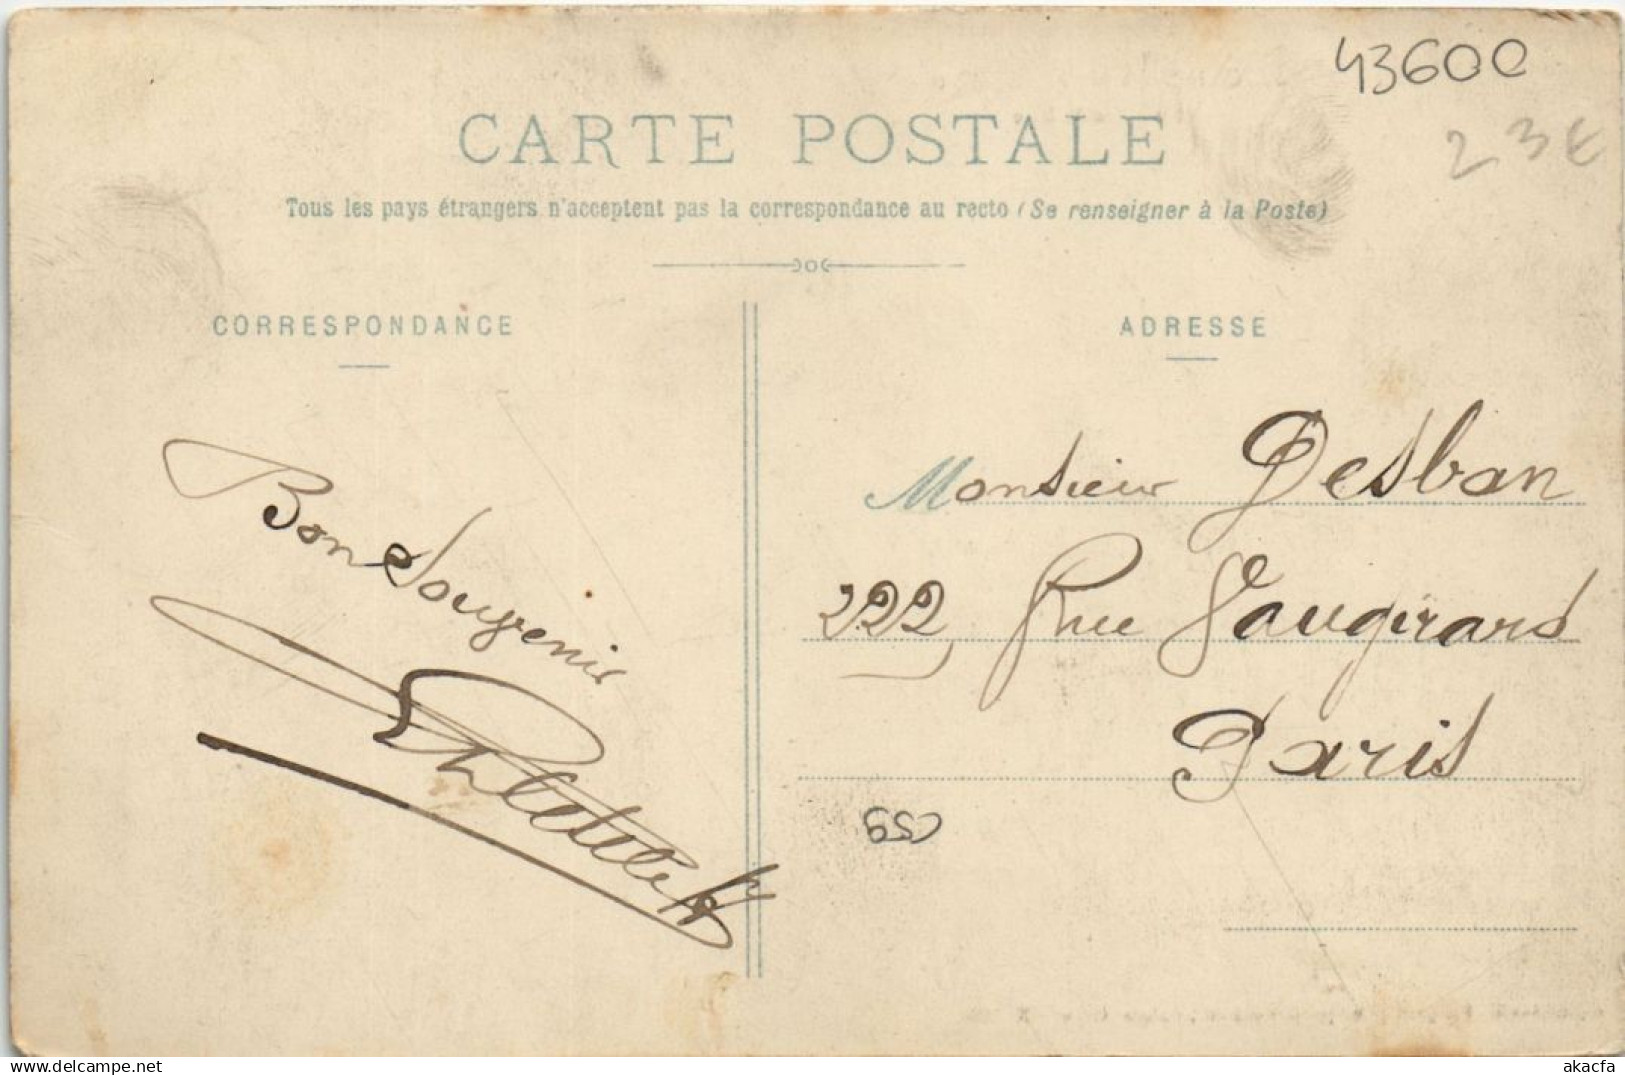 43600
2 3€
CARTE POSTALE
Tous les pays étrangers n'acceptent pas la correspondance au recto (Se renseigner à la Poste)
CORRESPONDANCE
Bon Souvenir
ADRESSE
Monsieur Desban
222, Rue Vaugirard
Paris
akacfa